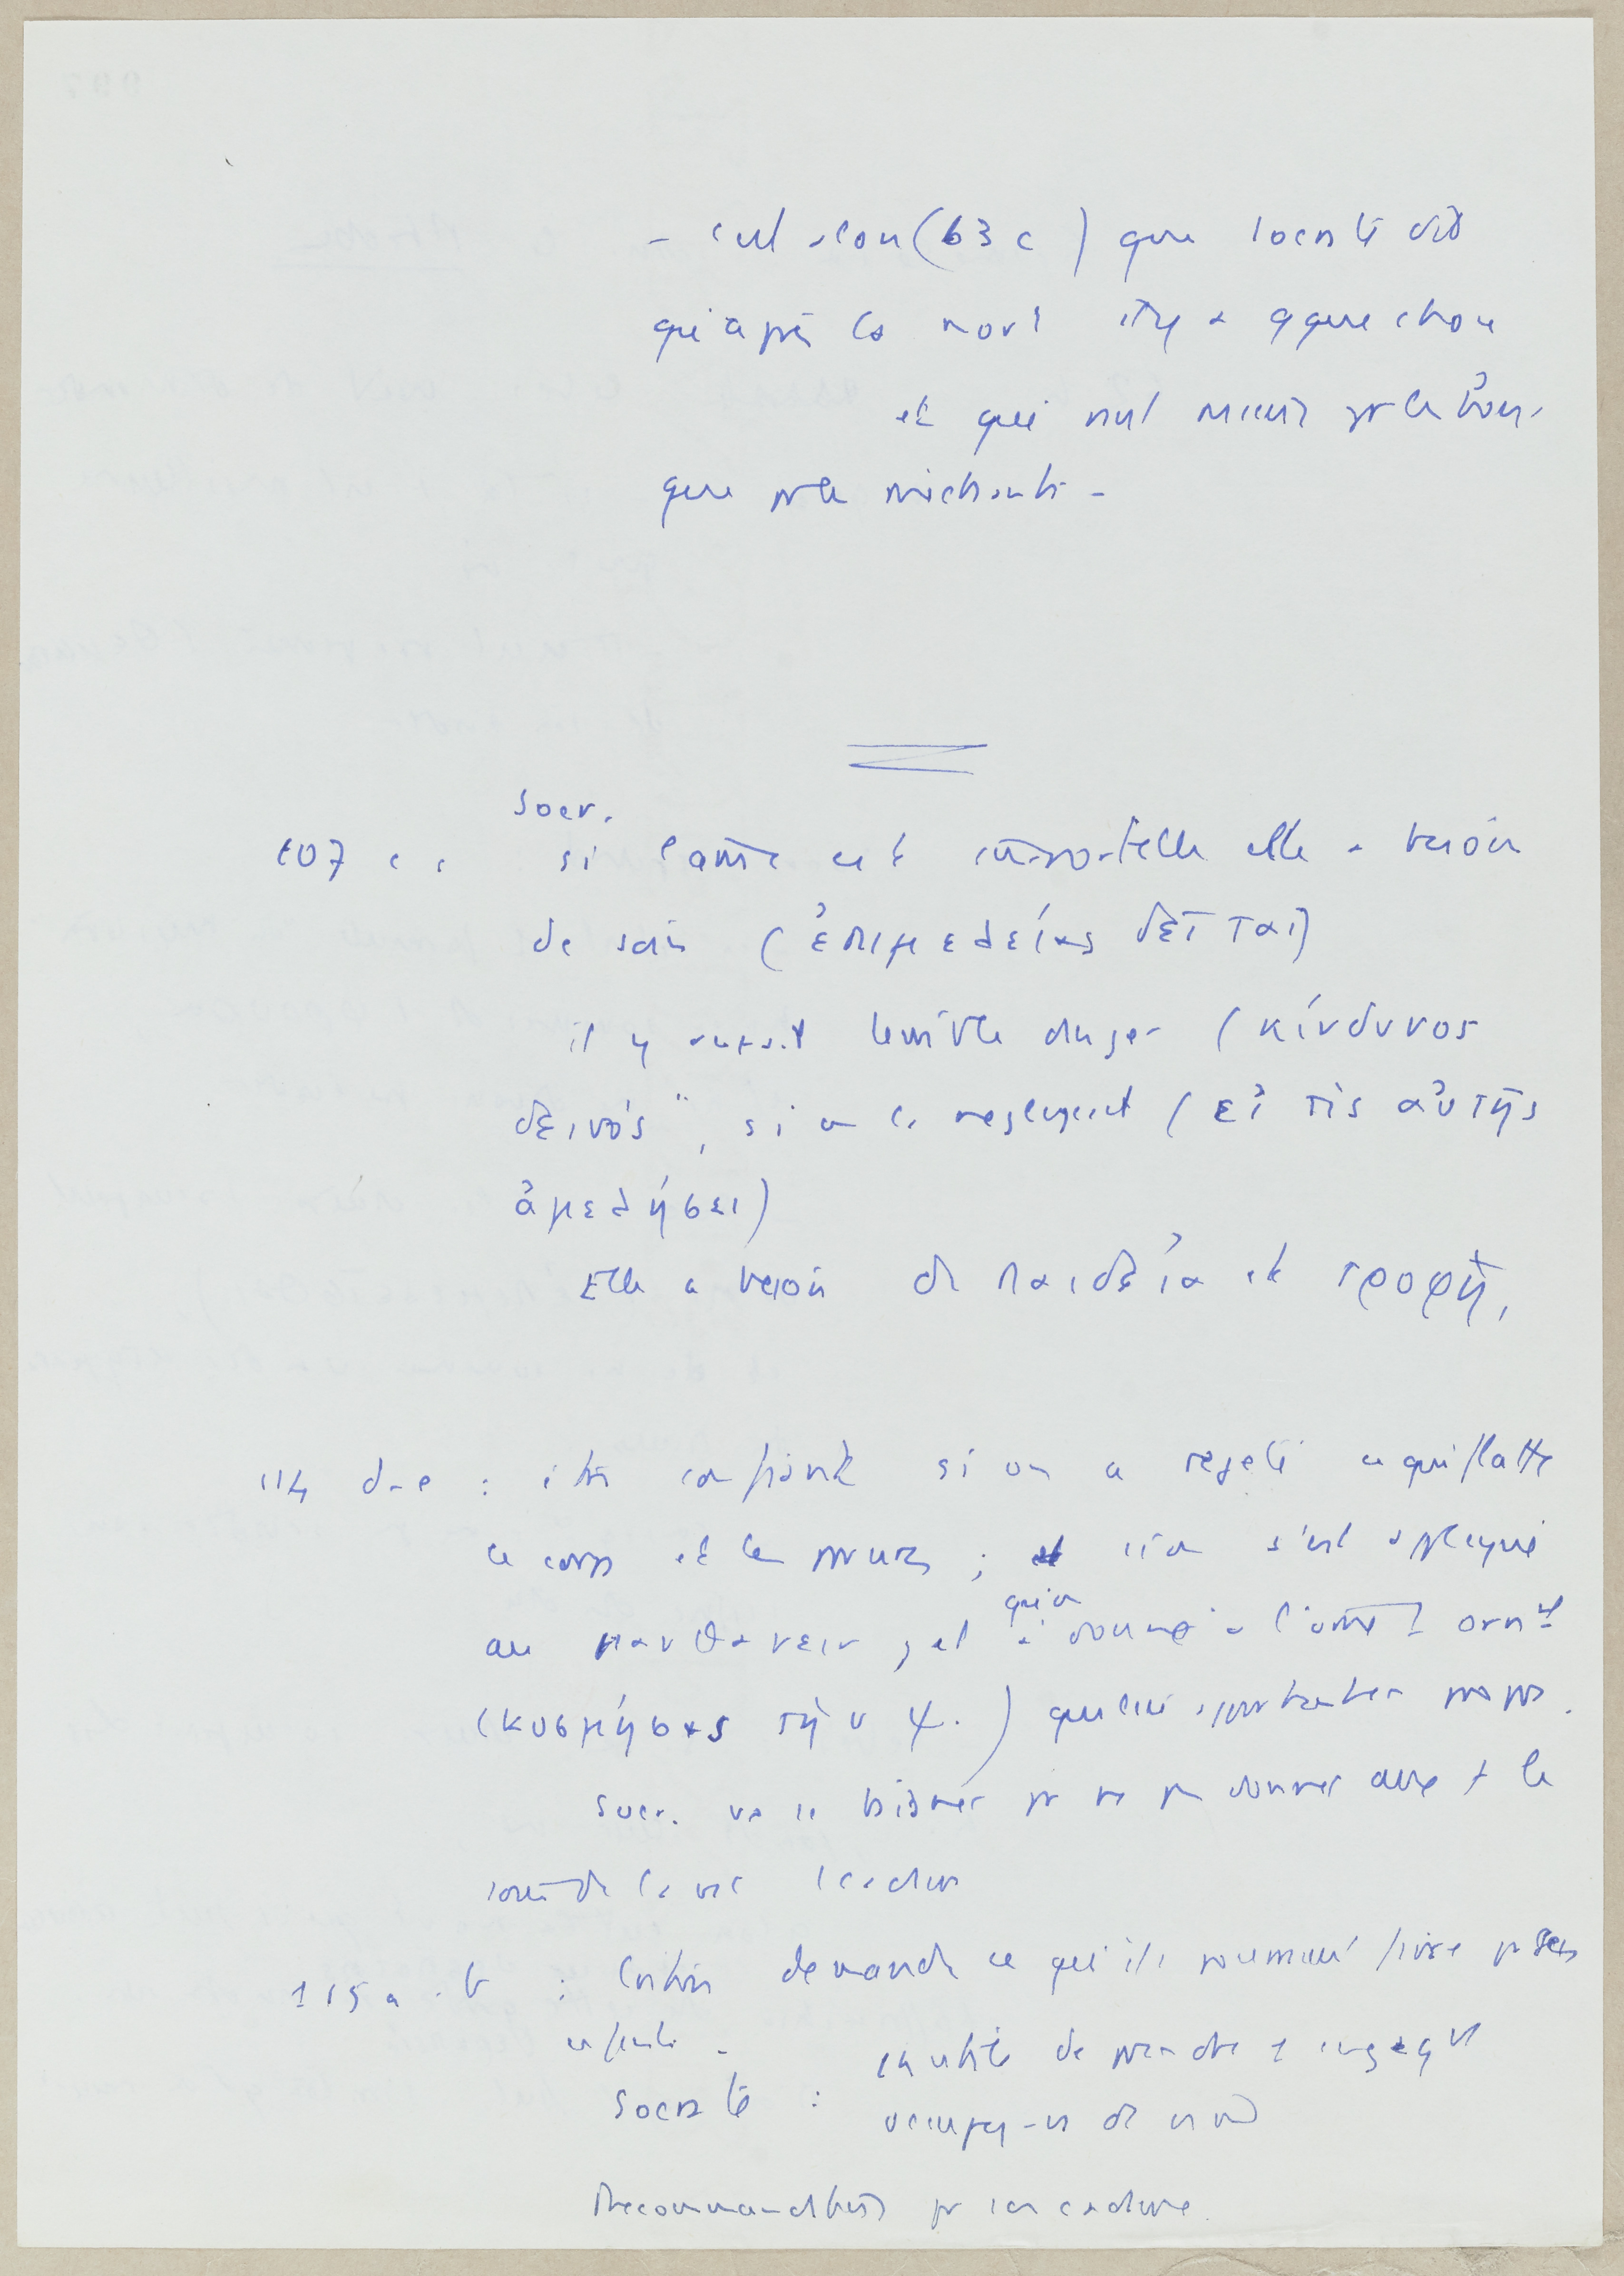 - c'est alors (63 c) que Socrate dit
qu'après la mort il y a qque chose
et qui vaut mieux pr les bons
que pr les méchants -
Socr.
107 c : si l'âme est immortelle elle a besoin
de soin (ἐπιμελείας δεῖται)
il y aurait terrible danger (κίνδυνος
δεινός", si on la negligeait (εἴ τις αὐτῆς
ἀμελήσει)
Elle a besoin de παιδεία et τροφῆ,
114 d-e : être confiant si on a rejeté ce qui flatte
le corps et les ; si on s'est appliqué
au μανθανειν, et qu'on a donné à l'âme l' ornt
(κοσμήσας τὴν ψ.) qui lui propres.
Socr. va se baigner pr ne pas donner aux f le
soin de laver le cadavre
115 a-b : Criton demande ce qu'ils pourraient faire pr ses
enfants -
Socrate : inutile de prendre engagt
occupez-vs de vs
Recommandations pr son cadavre.